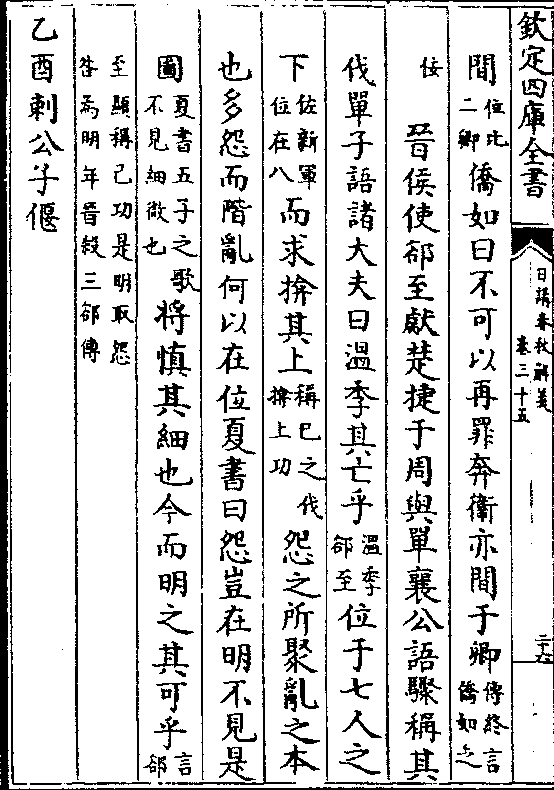 欽定四庫全書
日講春秋解義
卷三十五
間位比二卿僑如曰不可以再罪奔衛亦間于卿傳終言僑如之
佞
晉侯使郤至獻楚捷于周與單襄公語驟稱其
伐單子語諸大夫曰溫季其亡乎溫季郤至位于七人之
下佐新軍位在八而求揜其上稱已之伐揜上功怨之所聚亂之本
也多怨而階亂何以在位夏書曰怨豈在明不見是
圖夏書五子之歌不見細微也將慎其細也今而明之其可乎言郤
至顯稱己功是明取怨咎爲明年晉殺三郤傳
乙酉刺公子偃